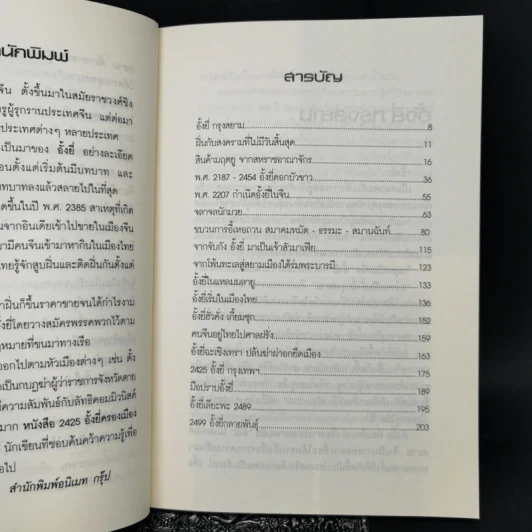 นักพิมพ์
จีน ตั้งขึ้นมาในสมัยราชวงศ์ชิง
ผู้รุกรานประเทศจีน แต่ต่อมา
ประเทศต่างๆ หลายประเทศ
เป็นมาของ อั้งยี่ อย่างละเอียด
ตั้งแต่เริ่มต้นมีบทบาท และ
ทบาทลงแล้วสลายไปในที่สุด
ขึ้นในปี พ.ศ. 2385 สาเหตุที่เกิด
จากอินเดียเข้าไปขายในเมืองจีน
มีคนจีนเข้ามาหากินในเมืองไทย
ไทยรู้จักสูบฝิ่นและติดฝิ่นกันตั้งแต่
ฝิ่นก็ขึ้นราคาขายจนได้กำไรงาม
อั้งยี่โดยวางสมัครพรรคพวกไว้ตาม
กฎหมายที่ขนมาทางเรือ
ออกไปตามหัวเมืองต่างๆ เช่น ตั้ง
เป็นกบฏฆ่าผู้ว่าราชการจังหวัดตาย
มีความสัมพันธ์กับลัทธิคอมมิวนิสต์
มาก หนังสือ 2425 อั้งยี่ครองเมือง
นักเขียนที่ชอบค้นคว้าความรู้เพื่อ
อไป
สำนักพิมพ์อนิเมท กรุ๊ป
สารบัญ
อั้งยี่ กรุงสยาม 8
ฝิ่นกับสงครามที่ไม่มีวันสิ้นสุด 11
สินค้ามฤตยู จากสหราชอาณาจักร 16
พ.ศ. 2187 - 2454 อั้งยี่ดอกบัวขาว 36
พ.ศ. 2207 กำเนิดอั้งยี่ในจีน 55
จลาจลนักมวย 63
ขบวนการอี้เหอถวน สมาคมหมัด - ธรรมะ - สมานฉันท์ 80
จากจับกัง อั้งยี่ มาเป็นเจ้าสัวมาเฟีย 115
จากโพ้นทะเลสู่สยามเมืองใต้ร่มพระบารมี 123
อั้งยี่ในแหลมมลายู 133
อั้งยี่เริ่มในเมืองไทย 136
อั้งยี่ฮั่วคั่ง เกี้ยมซุก 152
คนจีนอยู่ไทยไปศาลฝรั่ง 159
อั้งยี่ฉะเชิงเทรา ปล้นฆ่าฝ่าอกยึดเมือง 163
2425 อั้งยี่ กรุงเทพฯ 175
มือปราบอั้งยี่ 189
อั้งยี่เลียะพะ 2489 195
2499 อั้งยี่กลายพันธุ์ 203